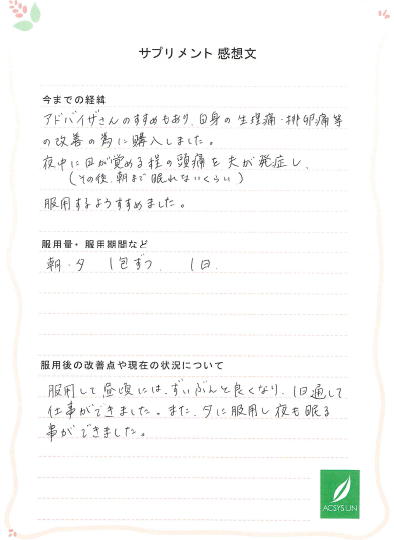 サプリメント 感想文
今までの経緯
アドバイザさんのすすめもあり、自身の生理痛・排卵痛等
の改善の為に購入しました。
夜中に目が覚める程の頭痛を夫が発症し、
(その後、朝まで眠れないくらい)
服用するようすすめました。
服用量・服用期間など
朝・夕 1包ずつ 1日
服用後の改善点や現在の状況について
服用して昼頃には、ずいぶんと良くなり、1日通して
仕事ができました。また、夕に服用し夜も眠る
事ができました。
ACSYS IJN